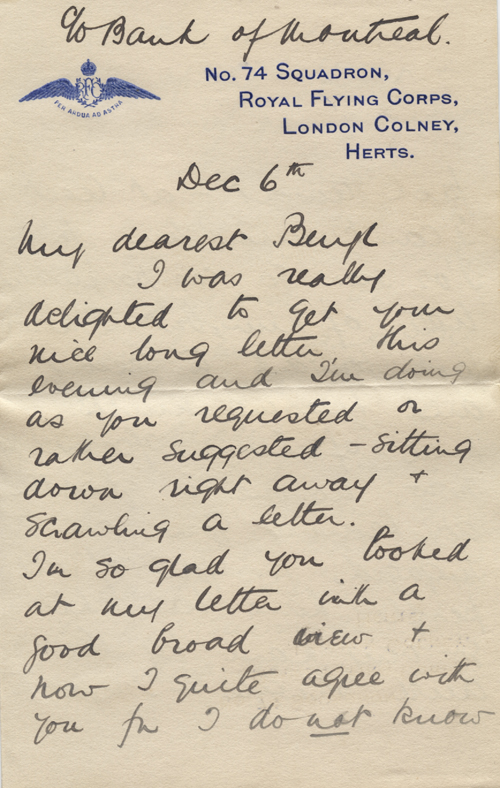 c/o Bank of Montreal.
RFC
PER ARDUA AD ASTRA
No. 74 Squadron,
Royal Flying Corps,
London Colney,
Herts.
Dec 6th
My dearest Beryl
I was really
delighted to get your
nice long letter, this
evening and I'm doing
as you requested or
rather suggested – sitting
down right away +
scrawling a letter.
I'm so glad you looked
at my letter with a
good broad view +
now I quite agree with
you for I do not know